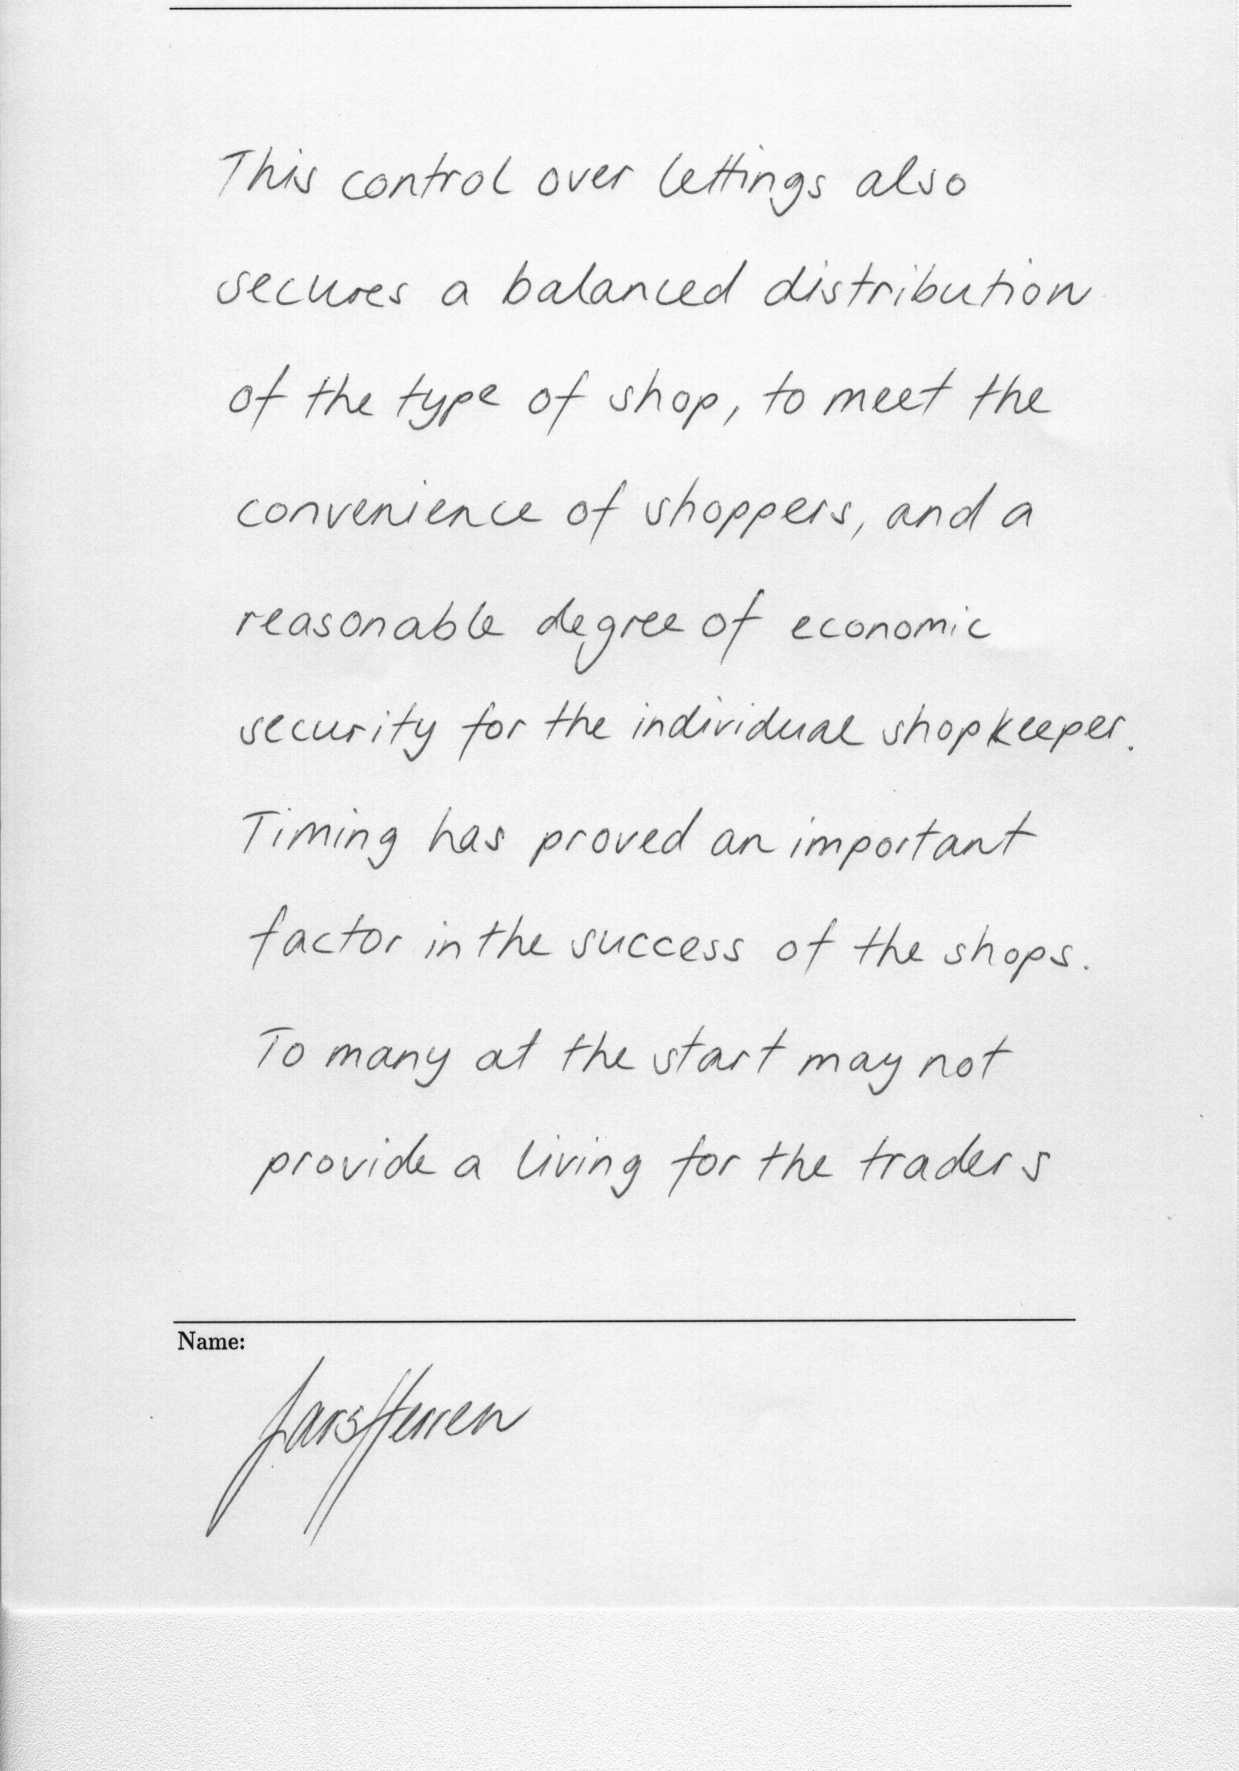 This control over lettings also
secures a balanced distribution
of the type of shop, to meet the
convenience of shoppers, and a
reasonable degree of economic
security for the individual shopkeeper.
Timing has proved an important
factor in the success of the shops.
To many at the start may not
provide a living for the traders
Name:
Lars Herren